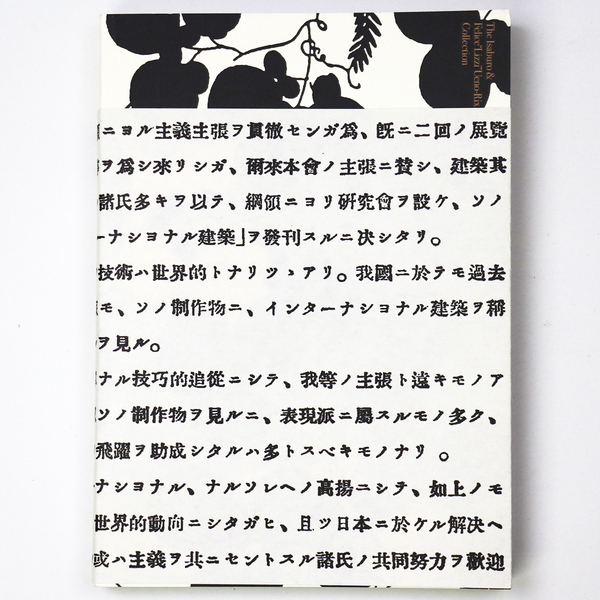 The Isaburo &
Felice "Lizzi" Ueno-Rix
Collection
ニヨル主義主張ヲ貫徹センガ爲、既ニ二回ノ展覽
ヲ爲シ來リシガ、爾來本會ノ主張ニ賛シ、建築其
諸氏多キヲ以テ、綱領ニヨリ研究會ヲ設ケ、ソノ
ーナシヨナル建築」ヲ發刊スルニ決シタリ。
技術ハ世界的トナリツヽアリ。我國ニ於テモ過去
モ、ソノ制作物ニ、インターナシヨナル建築ヲ稱
ヲ見ル。
ナル技巧的追從ニシテ、我等ノ主張ト遠キモノア
ソノ制作物ヲ見ルニ、表現派ニ屬スルモノ多ク、
飛躍ヲ助成シタルハ多トスベキモノナリ。
ナシヨナル、ナルソレヘノ高揚ニシテ、如上ノモ
世界的動向ニシタガヒ、且ツ日本ニ於ケル解決ヘ
或ハ主義ヲ共ニセントスル諸氏ノ共同努力ヲ歡迎